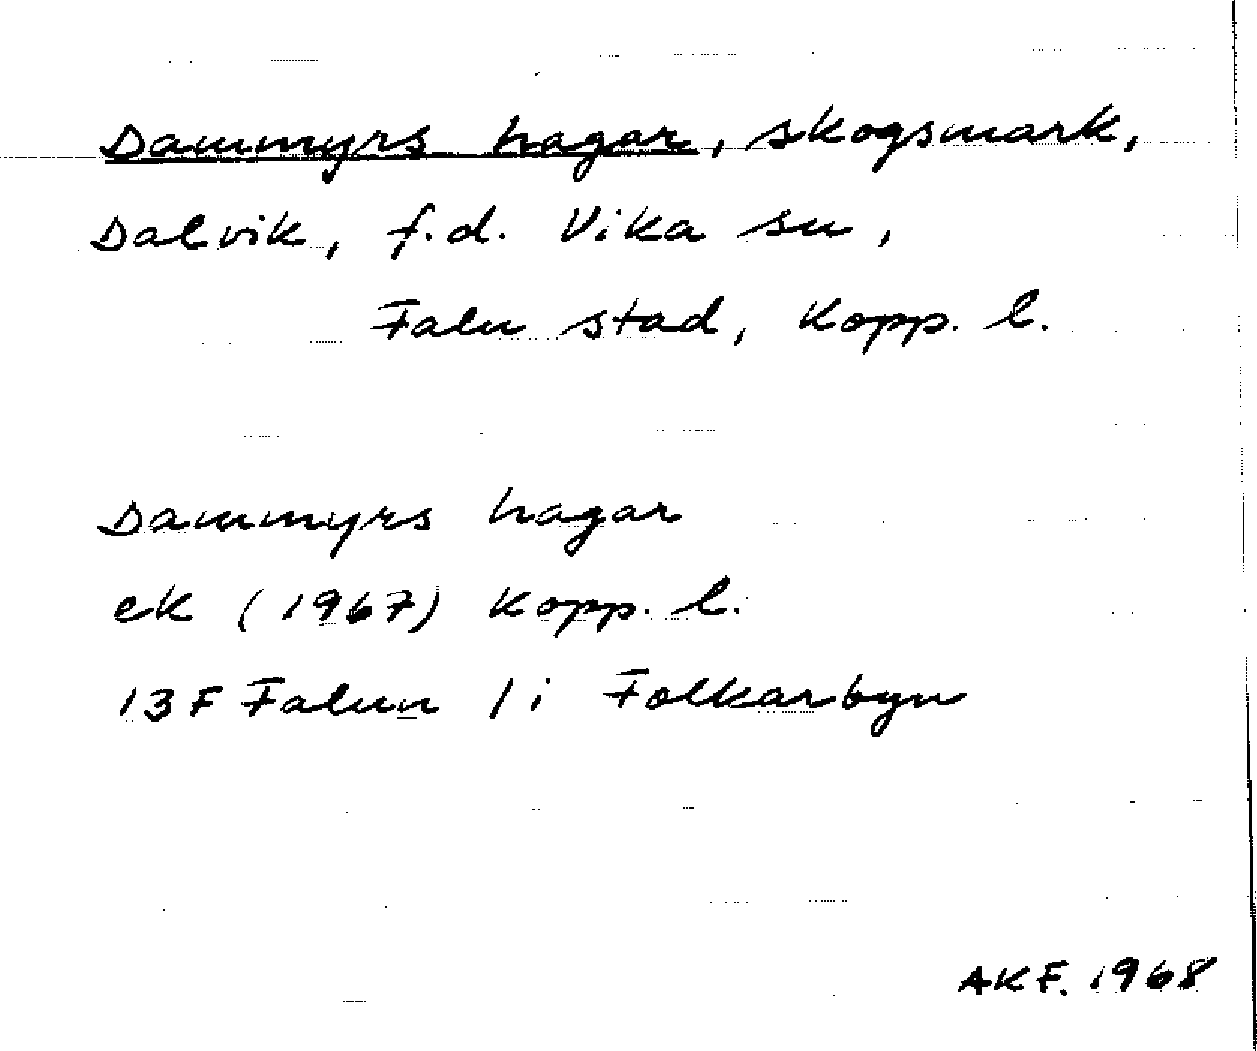 Dammyrs hagar, skogsmark,
Dalvik, f.d. Vika sn,
Falu stad, Kopp. l.
Dammyrs hagar
ek (1967) Kopp. l.
13F Falun 1i Folkarbyn
AKF. 1968